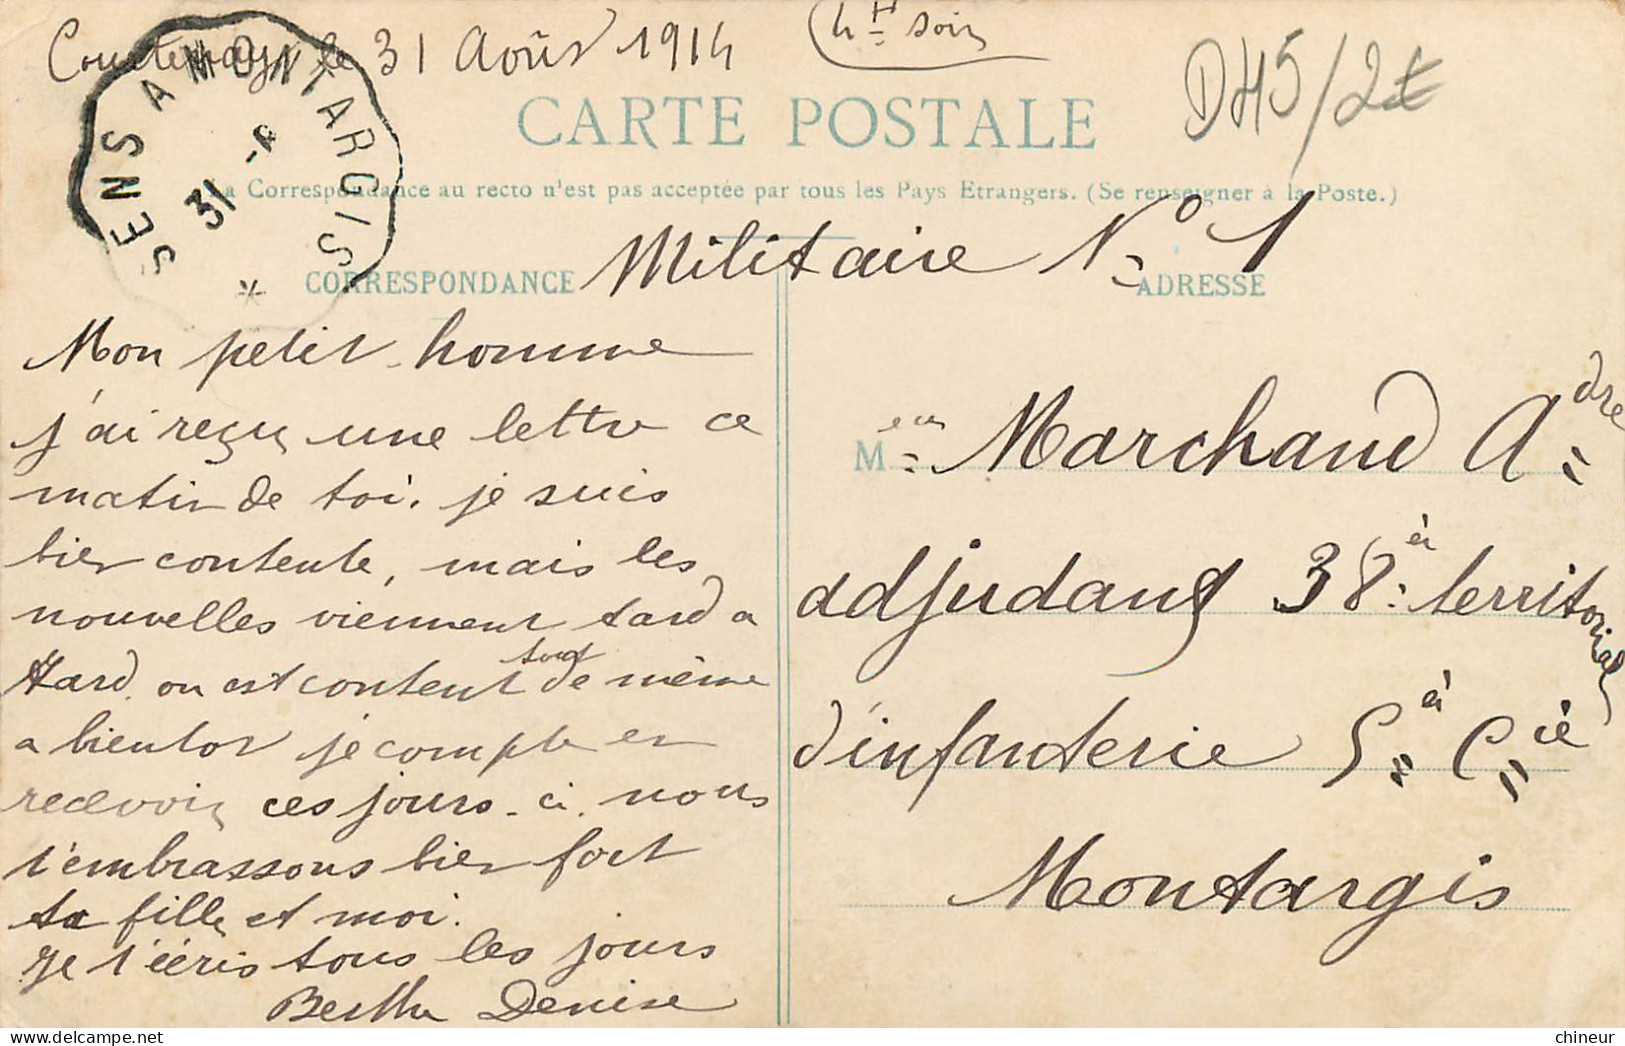 Courtenay le 31 Août 1914 4h soir
D45/2t
SENS A MONTARGIS
31 -8
CARTE POSTALE
La Correspondance au recto n'est pas acceptée par tous les Pays Etrangers. (Se renseigner à la Poste.)
Militaire No 1
CORRESPONDANCE
Mon petit homme
j'ai reçu une lettre ce
matin de toi. je suis
bien contente, mais les
nouvelles viennent tard a
tard. on est content tout de même
a bientot je compte en
recevoir ces jours-ci. nous
t'embrassons bien fort
ta fille et moi.
Je t'écris tous les jours
Berthe Denise
ADRESSE
M Marchand Adre
adjudant 38è territorial
d'infanterie 5è Cie
Montargis
chineur